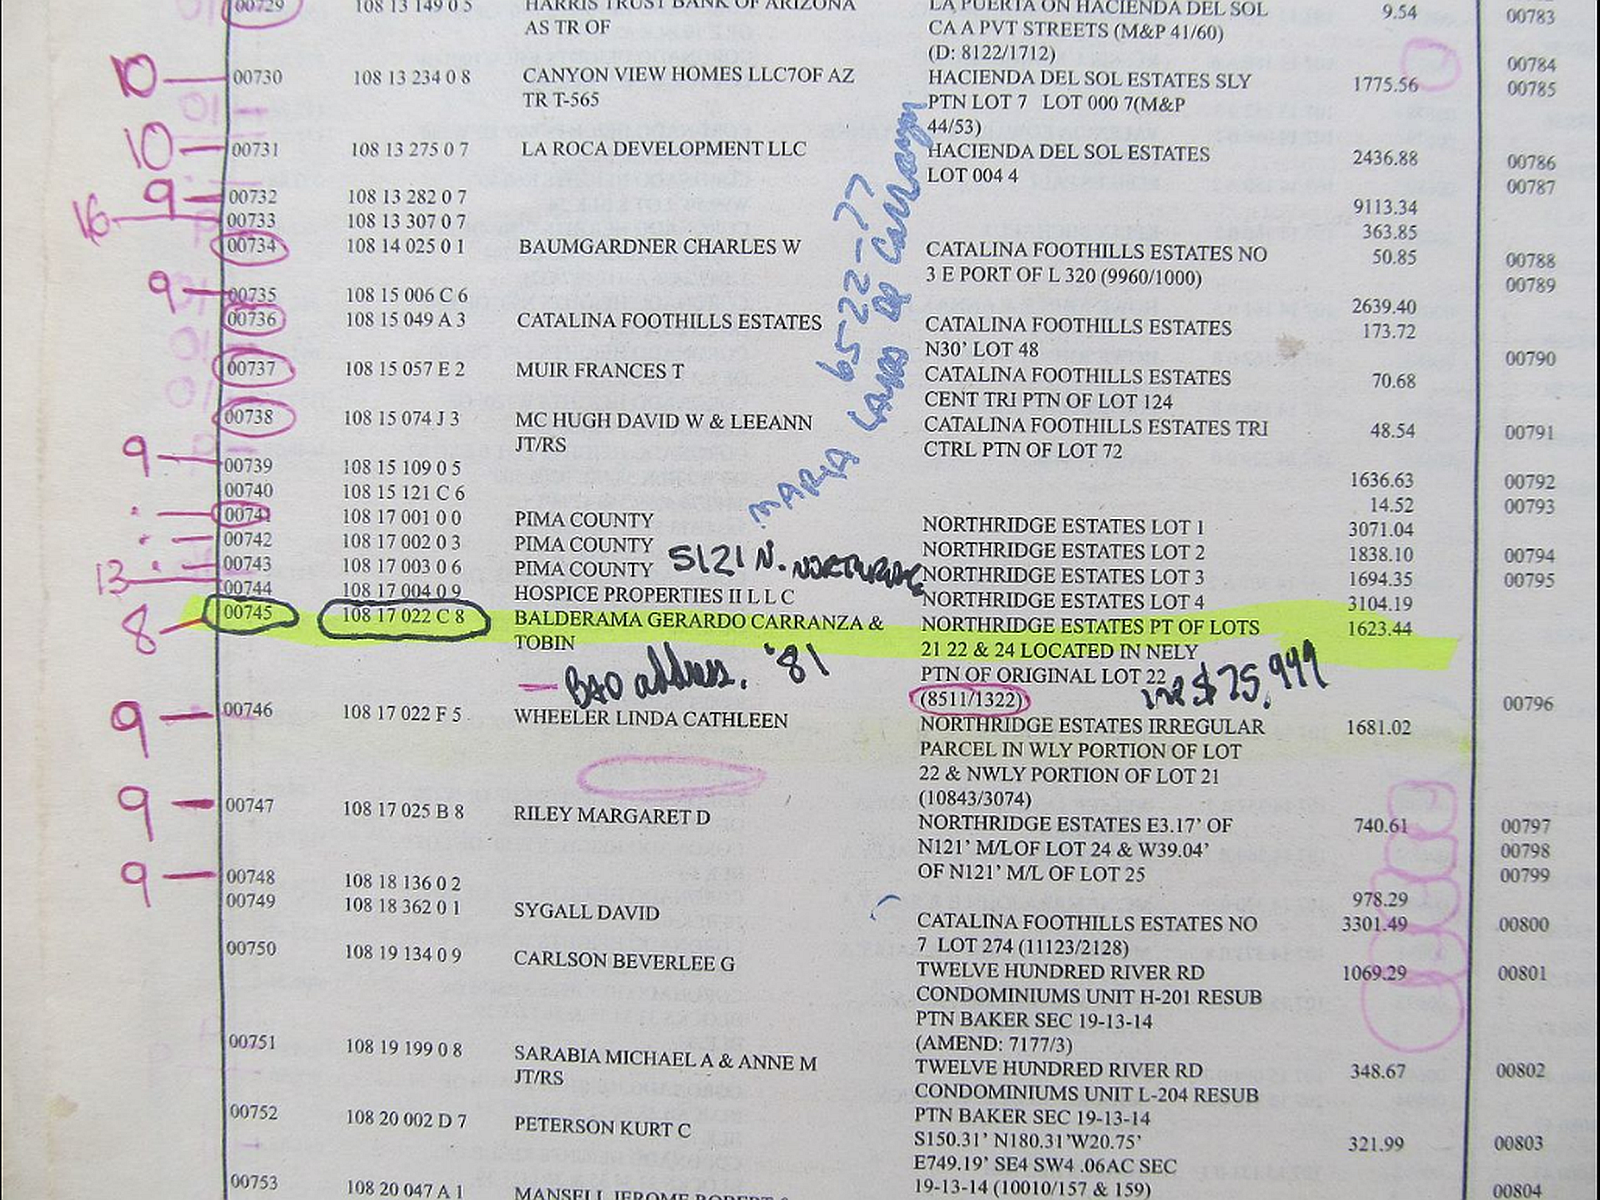 00729 108 13 149 0 5 HARRIS TRUST BANK OF ARIZONA LA PUERTA ON HACIENDA DEL SOL 9.54 00783
AS TR OF CA A PVT STREETS (M&P 41/60)
(D: 8122/1712) 00784
10 00730 108 13 234 0 8 CANYON VIEW HOMES LLC7OF AZ HACIENDA DEL SOL ESTATES SLY 1775.56 00785
TR T-565 PTN LOT 7 LOT 000 7(M&P
44/53)
10 00731 108 13 275 0 7 LA ROCA DEVELOPMENT LLC HACIENDA DEL SOL ESTATES 2436.88 00786
LOT 004 4 00787
9 00732 108 13 282 0 7 9113.34
16 00733 108 13 307 0 7 363.85
00734 108 14 025 0 1 BAUMGARDNER CHARLES W CATALINA FOOTHILLS ESTATES NO 50.85 00788
3 E PORT OF L 320 (9960/1000) 00789
9 00735 108 15 006 C 6 2639.40
00736 108 15 049 A 3 CATALINA FOOTHILLS ESTATES CATALINA FOOTHILLS ESTATES 173.72
N30' LOT 48 00790
00737 108 15 057 E 2 MUIR FRANCES T CATALINA FOOTHILLS ESTATES 70.68
CENT TRI PTN OF LOT 124
00738 108 15 074 J 3 MC HUGH DAVID W & LEEANN CATALINA FOOTHILLS ESTATES TRI 48.54 00791
JT/RS CTRL PTN OF LOT 72
9 00739 108 15 109 0 5 1636.63 00792
00740 108 15 121 C 6 14.52 00793
00741 108 17 001 0 0 PIMA COUNTY NORTHRIDGE ESTATES LOT 1 3071.04
00742 108 17 002 0 3 PIMA COUNTY NORTHRIDGE ESTATES LOT 2 1838.10 00794
00743 108 17 003 0 6 PIMA COUNTY NORTHRIDGE ESTATES LOT 3 1694.35 00795
13 00744 108 17 004 0 9 HOSPICE PROPERTIES II L L C NORTHRIDGE ESTATES LOT 4 3104.19
5121 N. NORTHRIDGE
6522-77
MARIA
8 00745 108 17 022 C 8 BALDERAMA GERARDO CARRANZA & NORTHRIDGE ESTATES PT OF LOTS 1623.44
TOBIN 21 22 & 24 LOCATED IN NELY
PTN OF ORIGINAL LOT 22
BAD address. '81 (8511/1322) $75,999 00796
9 00746 108 17 022 F 5 WHEELER LINDA CATHLEEN NORTHRIDGE ESTATES IRREGULAR 1681.02
PARCEL IN WLY PORTION OF LOT
22 & NWLY PORTION OF LOT 21
(10843/3074)
9 00747 108 17 025 B 8 RILEY MARGARET D NORTHRIDGE ESTATES E3.17' OF 740.61 00797
N121' M/LOF LOT 24 & W39.04' 00798
OF N121' M/L OF LOT 25 00799
9 00748 108 18 136 0 2 978.29
00749 108 18 362 0 1 SYGALL DAVID CATALINA FOOTHILLS ESTATES NO 3301.49 00800
7 LOT 274 (11123/2128)
00750 108 19 134 0 9 CARLSON BEVERLEE G TWELVE HUNDRED RIVER RD 1069.29 00801
CONDOMINIUMS UNIT H-201 RESUB
PTN BAKER SEC 19-13-14
(AMEND: 7177/3)
00751 108 19 199 0 8 SARABIA MICHAEL A & ANNE M TWELVE HUNDRED RIVER RD 348.67 00802
JT/RS CONDOMINIUMS UNIT L-204 RESUB
PTN BAKER SEC 19-13-14
00752 108 20 002 D 7 PETERSON KURT C S150.31' N180.31'W20.75' 321.99 00803
E749.19' SE4 SW4 .06AC SEC
19-13-14 (10010/157 & 159)
00753 108 20 047 A 1 MANSELL JEROME ROBERT & 00804